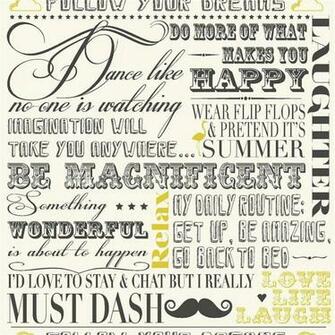 FOLLOW YOUR DREAMS
Dance like
no one is watching
DO MORE OF WHAT
MAKES YOU
HAPPY
LAUGHTER
IMAGINATION WILL
TAKE YOU ANYWHERE...
WEAR FLIP FLOPS
& PRETEND IT'S
SUMMER
BE MAGNIFICENT
Something
WONDERFUL
is about to happen
Relax
MY DAILY ROUTINE:
GET UP, BE AMAZING,
GO BACK TO BED
I'D LOVE TO STAY & CHAT BUT I REALLY
MUST DASH
LOVE
LIFE
LAUGH
FOLLOW YOUR DREAMS